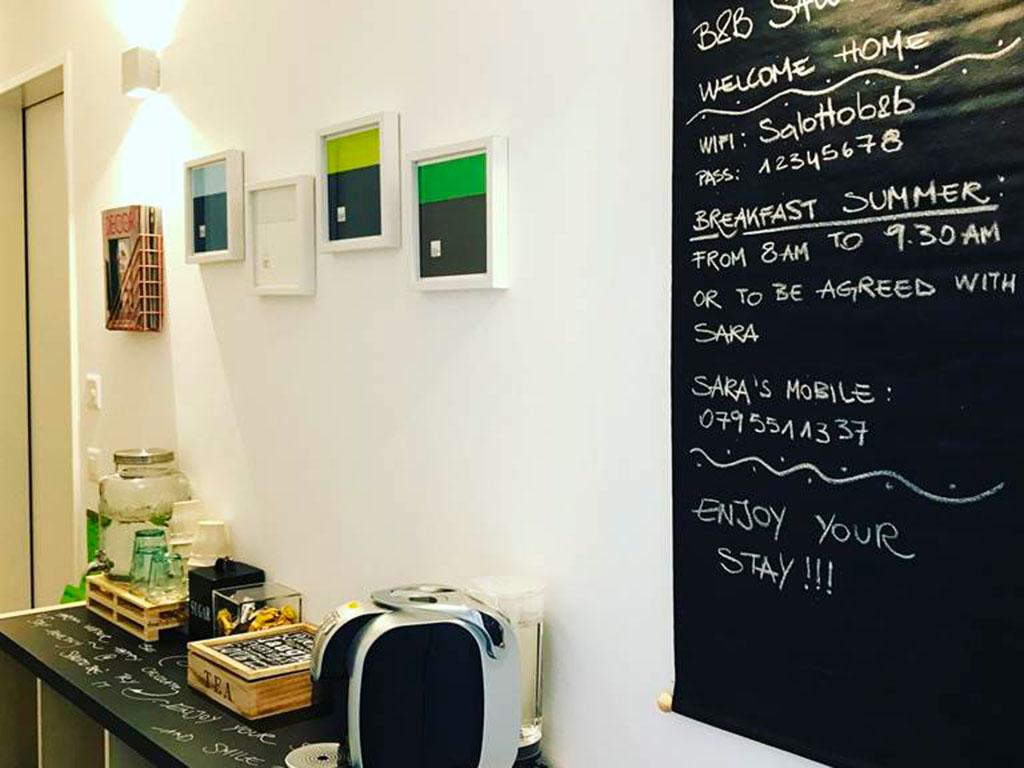 B&B
WELCOME HOME
WIFI: Salottob&b
PASS: 12345678
BREAKFAST SUMMER:
FROM 8AM TO 9.30AM
OR TO BE AGREED WITH
SARA
SARA'S MOBILE:
0795511337
ENJOY YOUR
STAY!!!
DECOR
SUGAR
TEA
ENJOY YOUR
AND SMILE